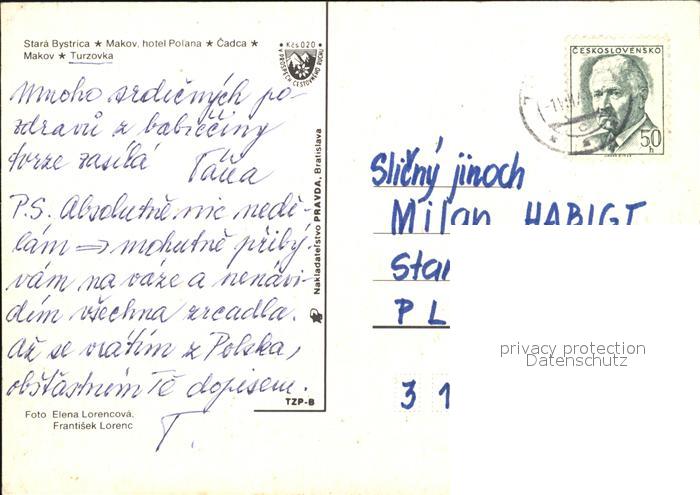 Stará Bystrica ★ Makov, hotel Poľana ★ Čadca ★
Makov ★ Turzovka
Kčs 0·20
V PROSPECH CESTOVNÉHO RUCHU
Mnoho srdečných po-
zdravů z babiččiny
tvrze zasílá Táňa
P.S. Absolutně nic nedě-
lám ⇒ mohutně přibý-
vám na váze a nenávi-
dím všechna zrcadla.
Až se vrátím z Polska,
obšťastním Tě dopisem.
T.
Foto Elena Lorencová,
František Lorenc
Nakladateľstvo PRAVDA, Bratislava
TZP-B
ČESKOSLOVENSKO
50
h
Sličný jinoch
Milan HABIGT
Star
PL
31
privacy protection
Datenschutz